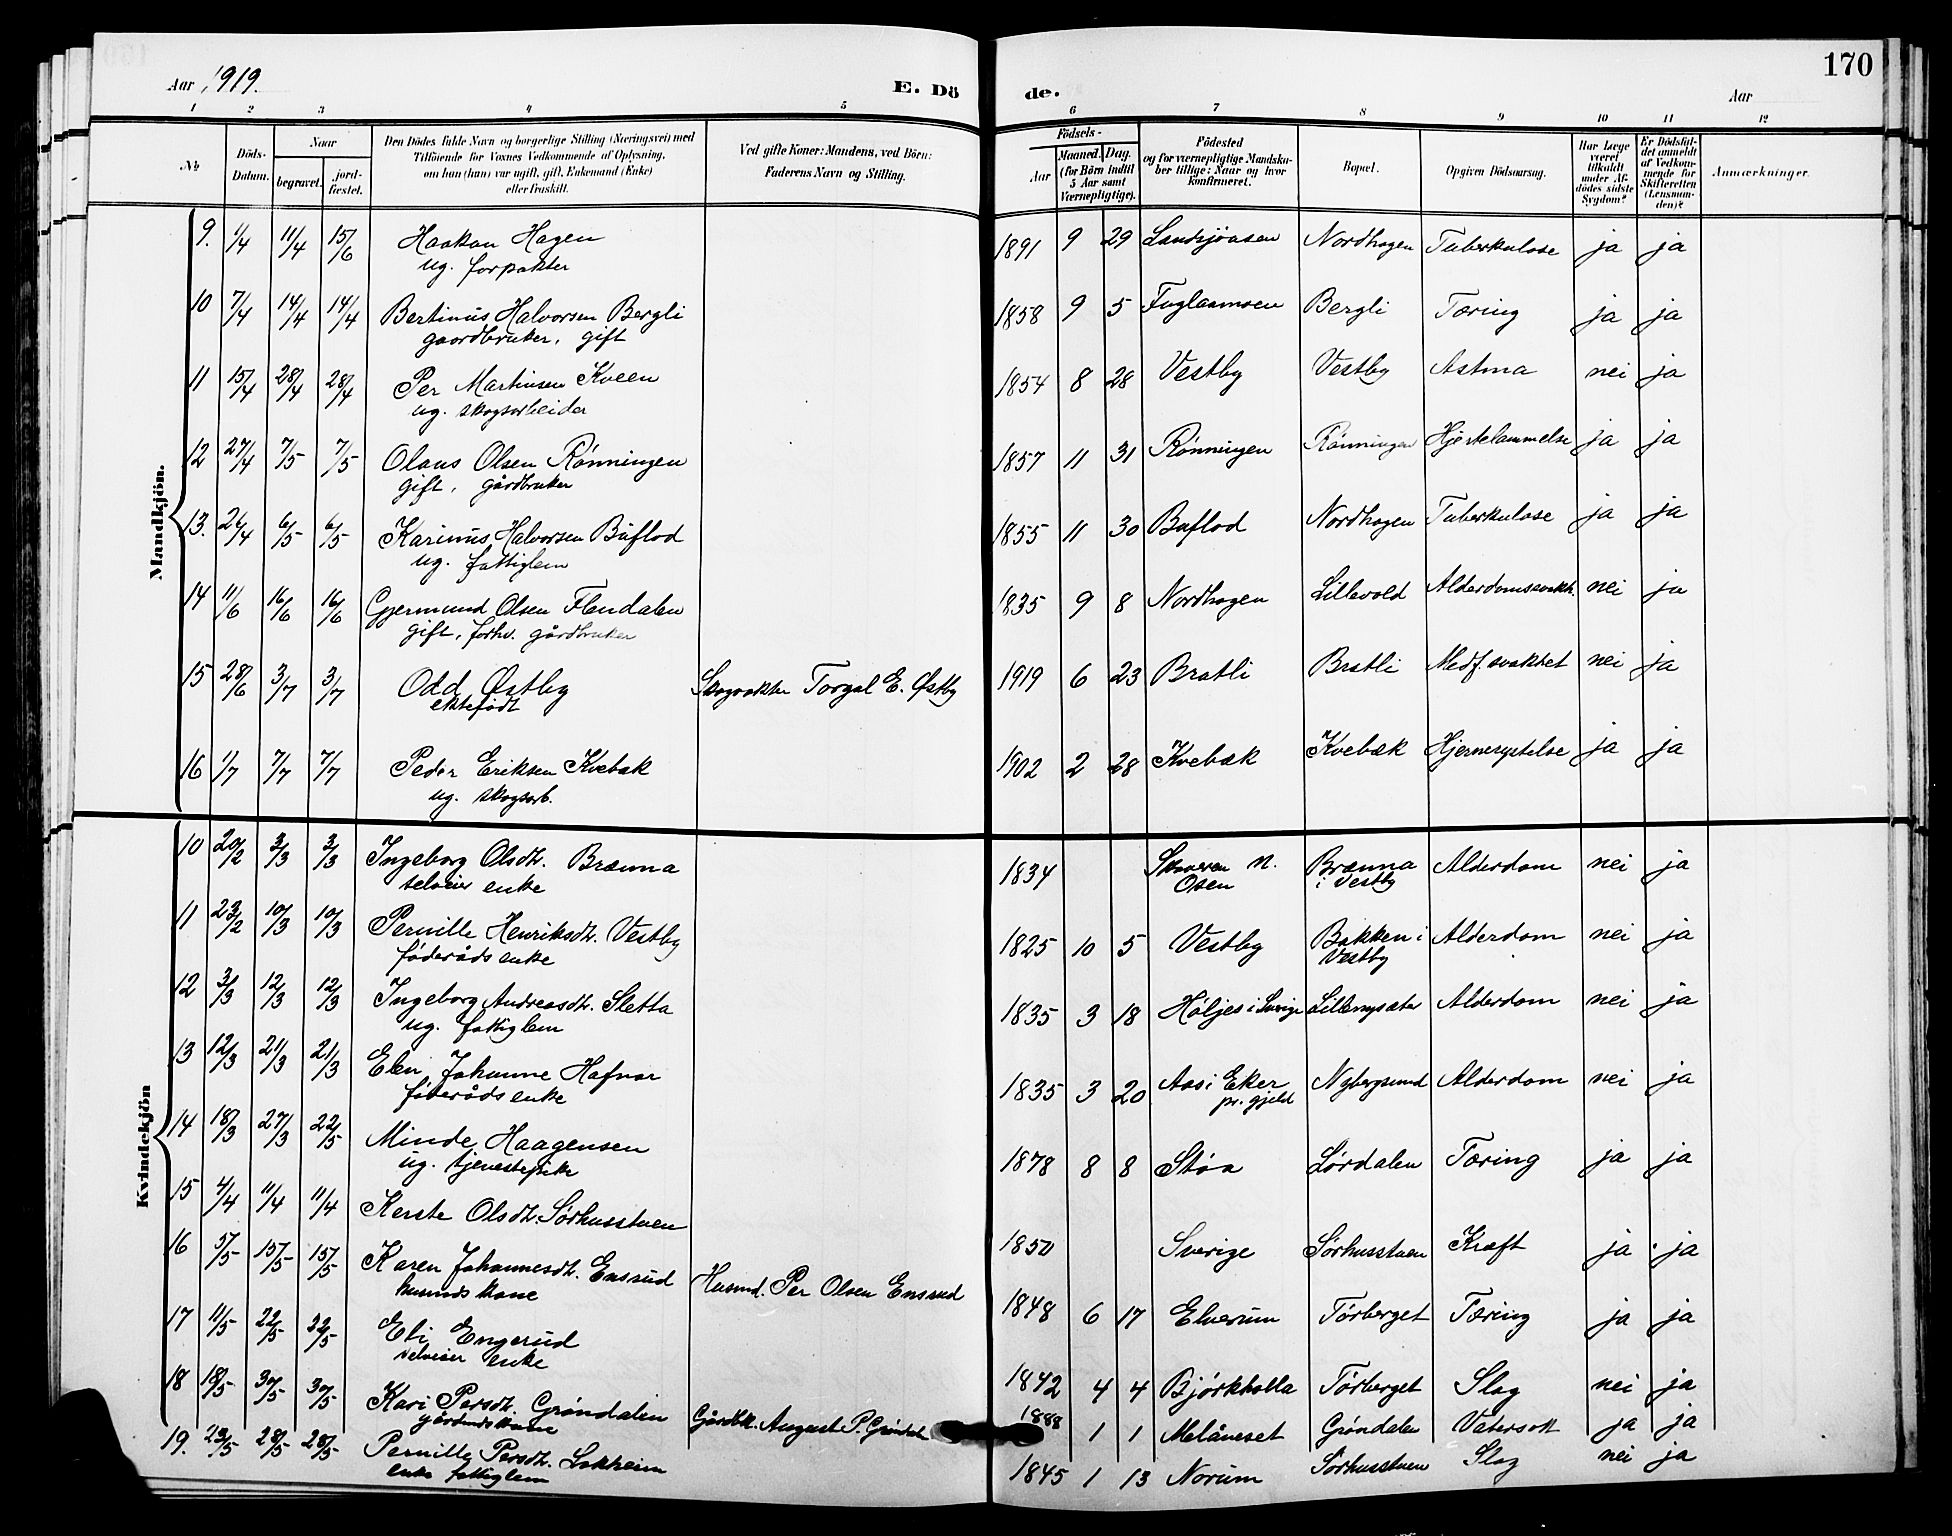 Aar 1919.
E. Dö
de.
Aar
170
1 2 3 4 5 6 7 8 9 10 11 12
№
Döds-
Datum.
Naar
begravet.
jord-
fæstet.
Den Dödes fulde Navn og borgerlige Stilling (Næringsvei) med
Tilföiende for Voxnes Vedkommende af Oplysning,
om han (hun) var ugift, gift, Enkemand (Enke)
eller fraskilt.
Ved gifte Koner: Mandens, ved Börn:
Faderens Navn og Stilling.
Födsels-
Aar
Maaned. Dag.
(for Börn indtil
5 Aar samt
Værnepligtige).
Födested
og for værnepligtige Mandska-
ber tillige: Naar og hvor
konfirmeret.
Bopæl.
Opgiven Dödsaarsag.
Har Læge
været
tilkaldt
under Af-
dödes sidste
Sygdom?
Er Dödsfal-
det anmeldt
af Vedkom-
mende for
Skifteretten
(Lensman-
den)?
Anmærkninger.
Mandkjön.
9. 1/4 11/4 15/6 Haakon Hagen 1891 9 29 Landsjöaasen Nordhagen Tuberkulose ja ja
ug. forpakter
10 7/4 14/4 14/4 Bertinus Halvorsen Bergli 1858 9 5 Fuglaamoen Bergli Tæring ja ja
gaardbruker, gift
11 15/4 28/4 28/4 Per Martinsen Kveen 1854 8 28 Vestby Vestby Astma nei ja
ug. skogsarbeider
12 27/4 7/5 7/5 Olaus Olsen Rönningen 1857 11 31 Rönningen Rönningen Hjertelammelse ja ja
gift, gårdbruker
13. 26/4 6/5 6/5 Karinus Halvorsen Buflod 1855 11 30 Buflod Nordhagen Tuberkulose ja ja
ug. fattiglem
14 11/6 16/6 16/6 Gjermund Olsen Flendalen 1835 9 8 Nordhagen Lillevold Alderdomssvakh. nei ja
gift, forhv. gårdbruker
15 28/6 3/7 3/7 Odd Østby Skogvakter Torgal E. Østby 1919 6 23 Bratli Bratli Medf. svakhet nei ja
ektefödt
16 1/7 7/7 7/7 Peder Eriksen Kvebæk 1902 2 28 Kvebæk Kvebæk Hjernerystelse ja ja
ug. skogsarb.
Kvindekjön
10 20/2 3/3 3/3 Ingeborg Olsdt. Brænna 1834 Osen Brænna Alderdom nei ja
selveier enke i Vestby
11 23/2 10/3 10/3 Pernille Henriksdt. Vestby 1825 10 5 Vestby Bakken i Alderdom nei ja
föderåds enke Vestby
12 3/3 12/3 12/3 Ingeborg Andreasdt. Sletta 1835 3 18 Höljes i Sverige Lillenysæter Alderdom nei ja
ug. fattiglem
13 12/3 21/3 21/3 Elen Johanne Hafnor 1835 3 20 Aas i Eker Nybergsund Alderdom nei ja
föderåds enke pr. gjeld
14 18/3 27/3 22/5 Minde Haagensen 1878 8 8 Støa Lördalen Tæring ja ja
ug. tjenestepike
15 4/4 11/4 11/4 Kerste Olsdt. Sörhusstuen 1850 Sverige Sörhusstuen Kræft ja ja
16 5/5 15/5 15/5 Karen Johannesdt. Ensrud Husmd. Per Olsen Ensrud 1848 6 17 Elverum Törberget Tæring ja ja
husmdskone
17 11/5 22/5 22/5 Eli Engerud 1842 4 4 Björkholla Törberget Slag nei ja
selveier enke
18 18/5 30/5 30/5 Kari Persdt. Gröndalen Gårdbk. August P. Gröndal 1888 1 1 Melåneset Gröndalen Vatersott ja ja
gårdmdskone
19. 23/5 28/5 28/5 Pernille Persdt. Løkheim 1845 1 13 Norum Sörhusstuen Slag nei ja
enke fattiglem